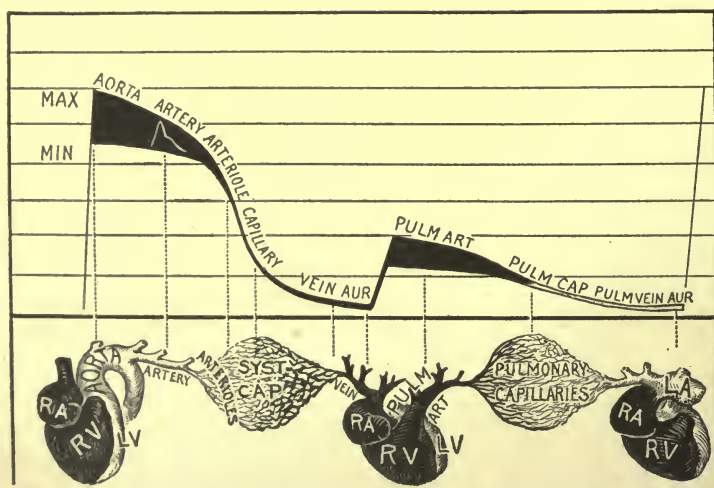 MAX
MIN
AORTA ARTERY ARTERIOLE CAPILLARY VEIN AUR
PULM ART PULM CAP PULM VEIN AUR
AORTA
ARTERY
ARTERIOLES
SYST
CAP
VEIN
RA
RV
LV
PULM
ART
RA
RV
LV
PULMONARY
CAPILLARIES
LA
RA
RV